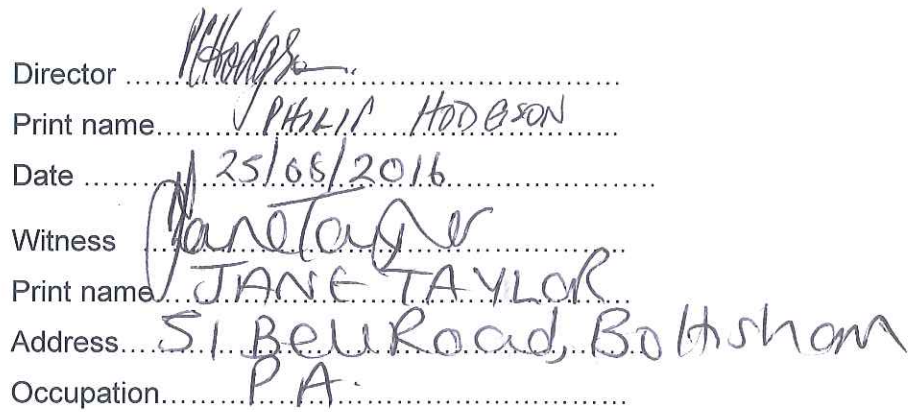 Director PCHodgson
Print name PHILIP HODGSON
Date 25/08/2016
Witness Jane Taylor
Print name JANE TAYLOR
Address 51 Bell Road, Bottisham
Occupation P A.